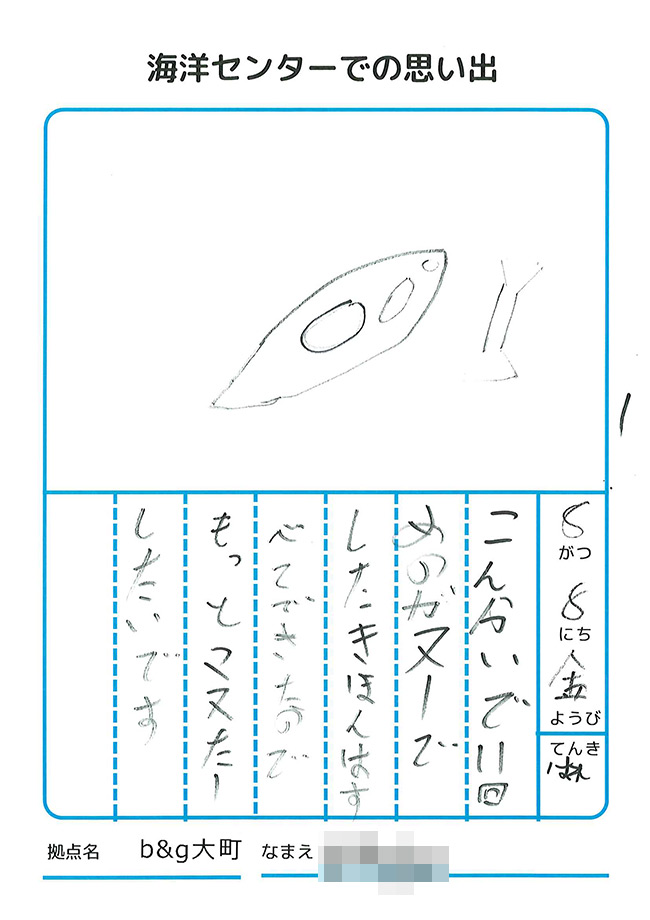 海洋センターでの思い出
8
がつ
8
にち
金
ようび
てんき
はれ
こんかいで11回
めのカヌーで
したきほんはす
べてできたので
もっとマスたー
したいです
拠点名 b&g大町 なまえ